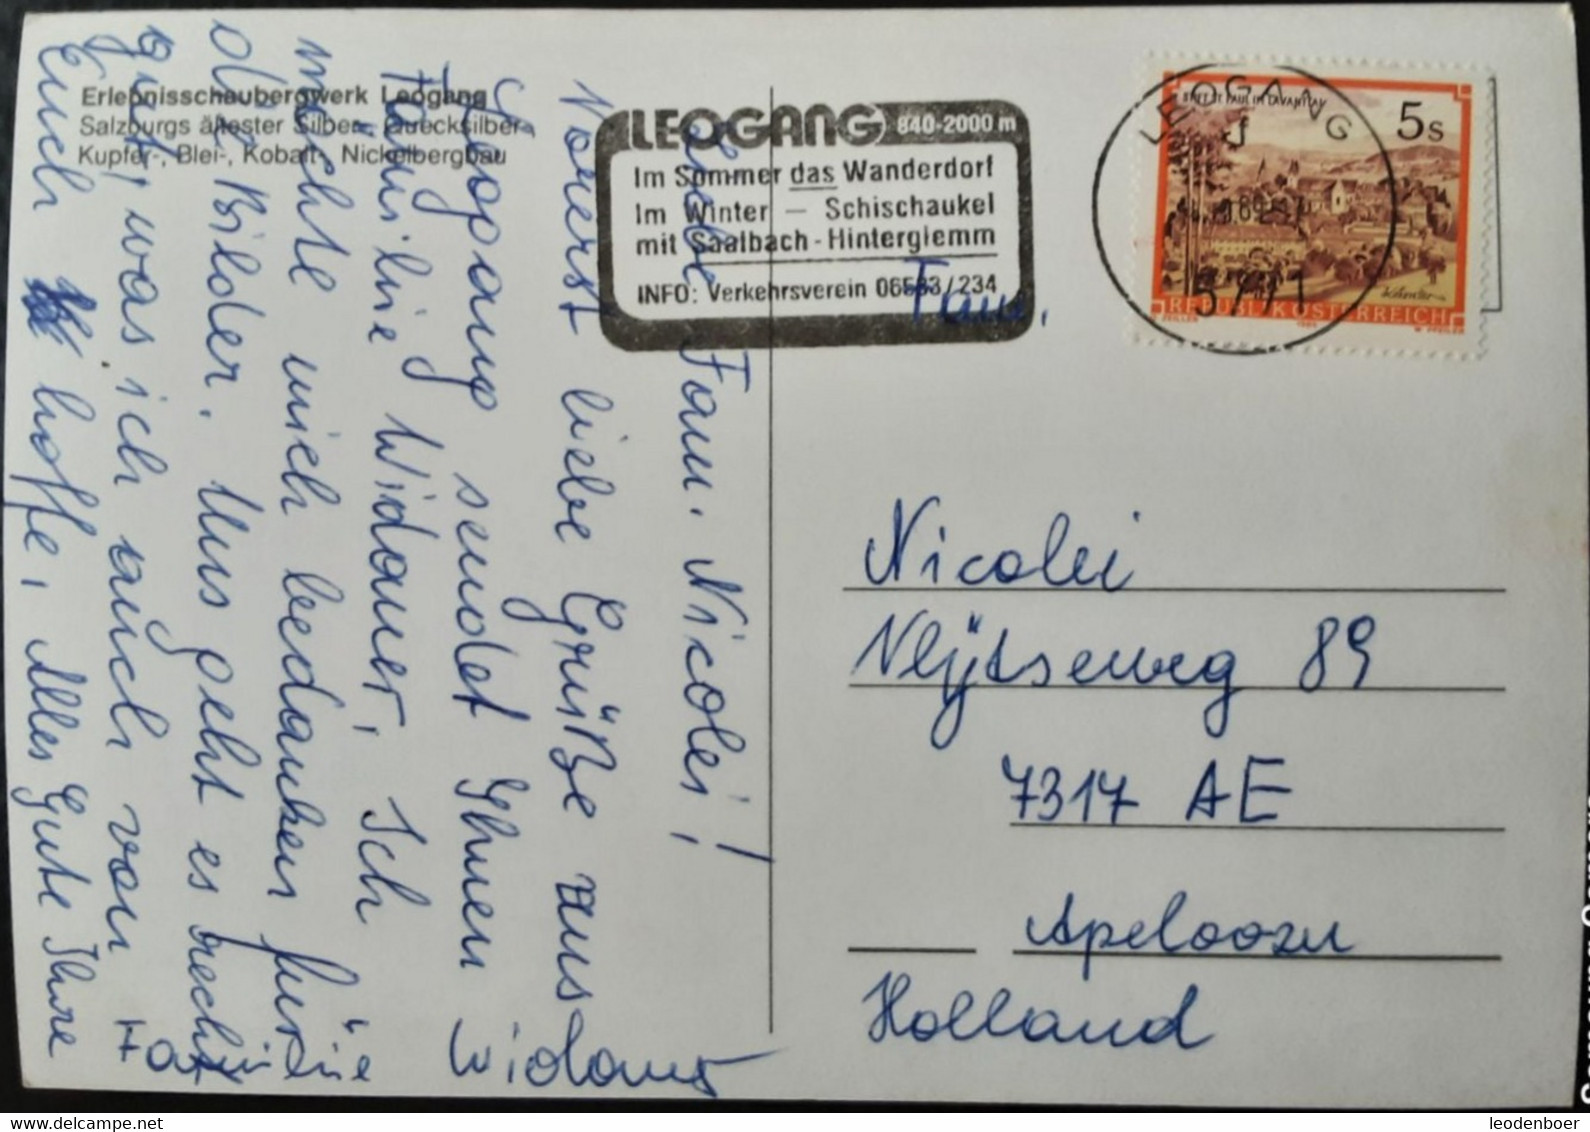 Erlebnisschaubergwerk Leogang
Salzburgs ältester Silber-, Quecksilber-
Kupfer-, Blei-, Kobalt-, Nickelbergbau
LEOGANG 840-2000 m
Im Sommer das Wanderdorf
Im Winter – Schischaukel
mit Saalbach-Hinterglemm
INFO: Verkehrsverein 06583/234
LEOGANG
5771
STIFT ST. PAUL IM LAVANTTAL
5s
REPUBLIK ÖSTERREICH
Liebe Fam. Nicolei!
Vorerst liebe Grüße aus
Leogang sendet Ihnen
Familie Widauer, Ich
möchte mich bedanken für
die Bilder. Uns geht es recht
gut, was ich auch von
Euch hoffe, Alles Gute Ihre
Fam. Widauer
Fam.
Nicolei
Vlijtseweg 89
7317 AE
Apeloozn
Holland
leodenboer